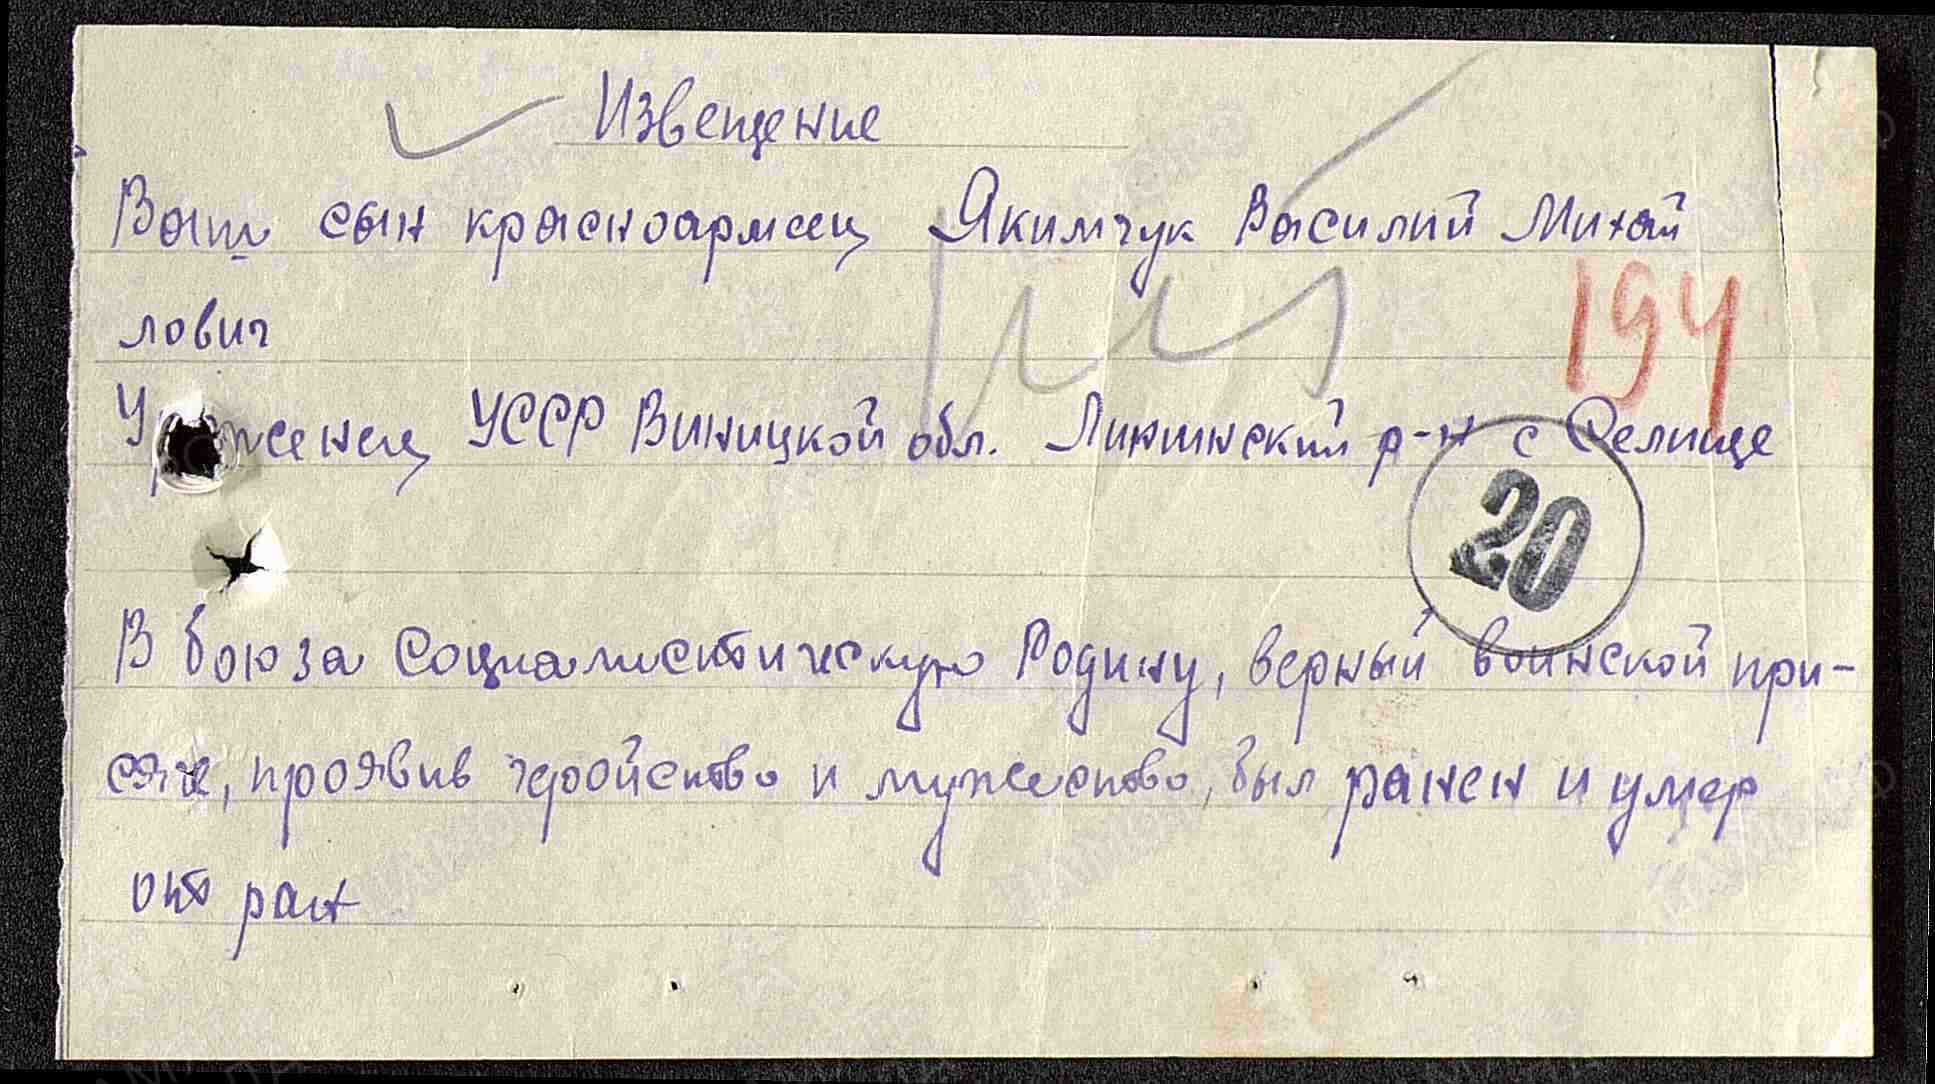 Извещение
Ваш сын красноармеец Якимчук Василий Михай
лович
Уроженец УССР Виницкой обл. р-н с Селище
20
194
В бою за социалистическую Родину, верный воинской при-
сяге, проявив геройство и мужество, был ранен и умер
от ран